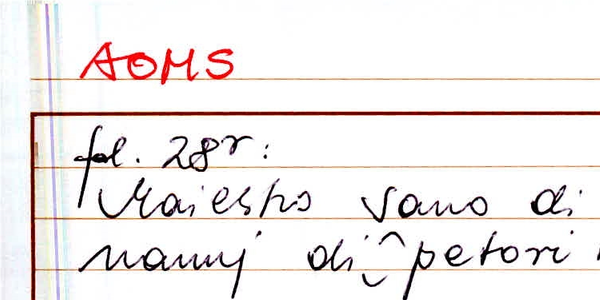 AOMS
fol. 28r:
Maiestro Vano di
nannj di petori